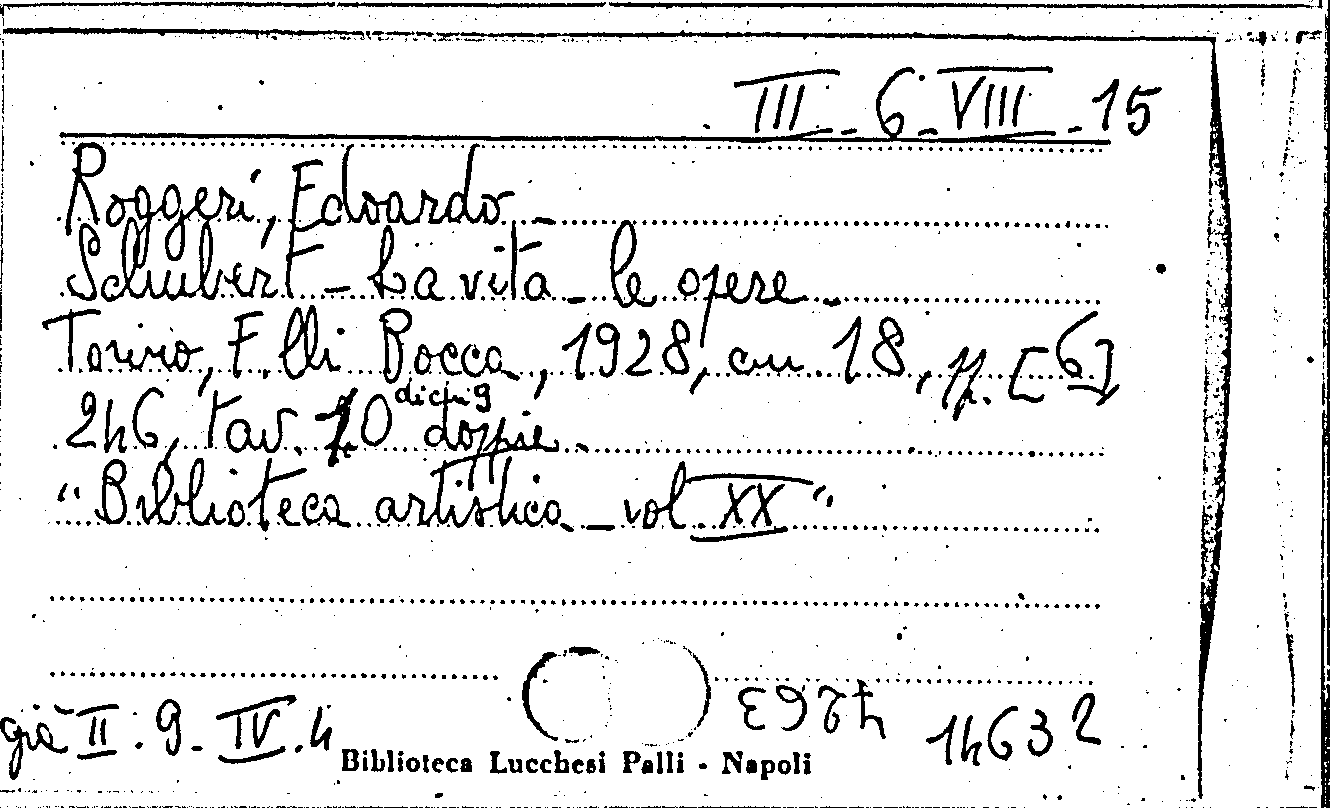 III - 6 - VIII - 15
Roggeri, Edoardo -
Schubert - La vita - le opere -
Torino, F.lli Bocca, 1928, cm 18, pp. [6]
246, tav. 10 doppie.
"Biblioteca artistica - vol XX"
già II. 9 - IV. 4
14632
Biblioteca Lucchesi Palli - Napoli